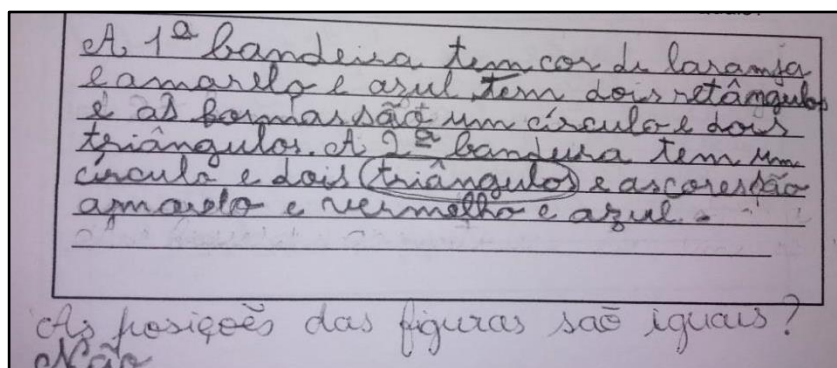 A 1ª bandeira tem cor de laramja
e amarelo e asul tem dois retângulos
e as formas são um círculo e dois
triângulos. A 2ª bandeira tem um
círculo e dois triângulos e as cores são
amarelo e vermelho e azul.
As posições das figuras são iguais?
Não